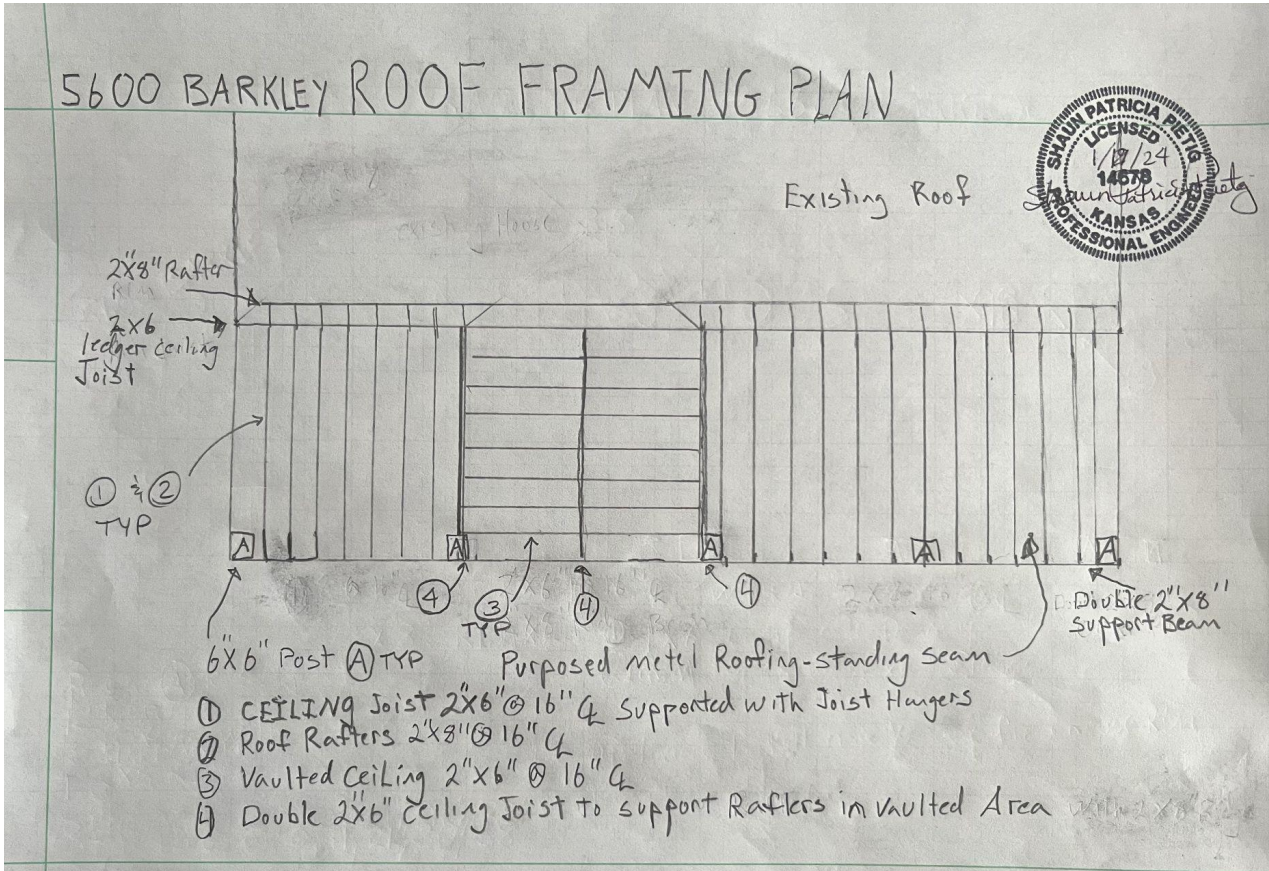 5600 BARKLEY ROOF FRAMING PLAN
SHAUN PATRICIA PIETIG
LICENSED
1/19/24
14678
KANSAS
PROFESSIONAL ENGINEER
Existing Roof
2"X8" Rafter
2X6
ledger ceiling
Joist
① & ②
TYP
A
A
A
A
A
④
③
TYP
④
④
Double 2"X8"
Support Beam
6"X6" Post Ⓐ TYP
Purposed metel Roofing-standing seam
① CEILING Joist 2"X6"@ 16" CL Supported with Joist Hangers
② Roof Rafters 2"X8"@ 16" CL
③ Vaulted CeiLing 2"X6" @ 16" CL
④ Double 2"X6" Ceiling Joist to support Raflers in vaulted Area